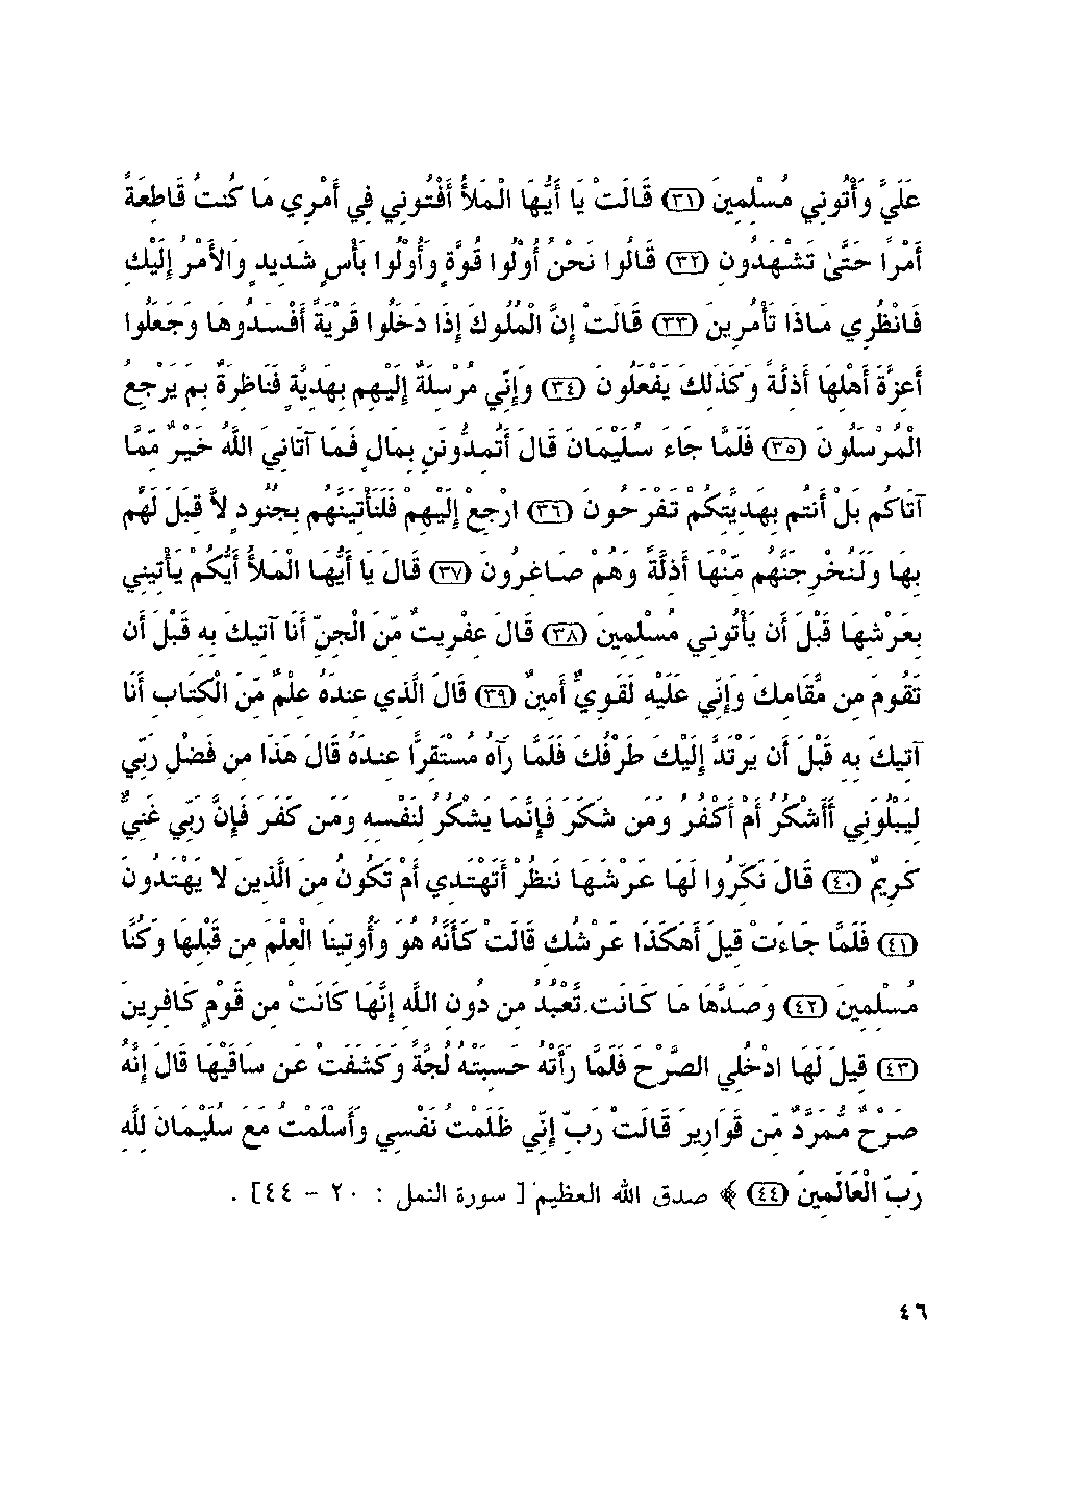 عَلَيَّ وَأْتُونِي مُسْلِمِينَ (٣١) قَالَتْ يَا أَيُّهَا الْمَلأُ أَفْتُونِي فِي أَمْرِي مَا كُنتُ قَاطِعَةً
أَمْرًا حَتَّىٰ تَشْهَدُونِ (٣٢) قَالُوا نَحْنُ أُوْلُوا قُوَّةٍ وَأُوْلُوا بَأْسٍ شَدِيدٍ وَالأَمْرُ إِلَيْكِ
فَانْظُرِي مَاذَا تَأْمُرِينَ (٣٣) قَالَتْ إِنَّ الْمُلُوكَ إِذَا دَخَلُوا قَرْيَةً أَفْسَدُوهَا وَجَعَلُوا
أَعِزَّةَ أَهْلِهَا أَذِلَّةً وَكَذَلِكَ يَفْعَلُونَ (٣٤) وَإِنِّي مُرْسِلَةٌ إِلَيْهِم بِهَدِيَّةٍ فَنَاظِرَةٌ بِمَ يَرْجِعُ
الْمُرْسَلُونَ (٣٥) فَلَمَّا جَاءَ سُلَيْمَانَ قَالَ أَتُمِدُّونَنِ بِمَالٍ فَمَا آتَانِيَ اللَّهُ خَيْرٌ مِّمَّا
آتَاكُم بَلْ أَنتُم بِهَدِيَّتِكُمْ تَفْرَحُونَ (٣٦) ارْجِعْ إِلَيْهِمْ فَلَنَأْتِيَنَّهُم بِجُنُودٍ لاَّ قِبَلَ لَهُم
بِهَا وَلَنُخْرِجَنَّهُم مِّنْهَا أَذِلَّةً وَهُمْ صَاغِرُونَ (٣٧) قَالَ يَا أَيُّهَا الْمَلأُ أَيُّكُمْ يَأْتِينِي
بِعَرْشِهَا قَبْلَ أَن يَأْتُونِي مُسْلِمِينَ (٣٨) قَالَ عِفْرِيتٌ مِّنَ الْجِنِّ أَنَا آتِيكَ بِهِ قَبْلَ أَن
تَقُومَ مِن مَّقَامِكَ وَإِنِّي عَلَيْهِ لَقَوِيٌّ أَمِينٌ (٣٩) قَالَ الَّذِي عِندَهُ عِلْمٌ مِّنَ الْكِتَابِ أَنَا
آتِيكَ بِهِ قَبْلَ أَن يَرْتَدَّ إِلَيْكَ طَرْفُكَ فَلَمَّا رَآهُ مُسْتَقِرًّا عِندَهُ قَالَ هَذَا مِن فَضْلِ رَبِّي
لِيَبْلُوَنِي أَأَشْكُرُ أَمْ أَكْفُرُ وَمَن شَكَرَ فَإِنَّمَا يَشْكُرُ لِنَفْسِهِ وَمَن كَفَرَ فَإِنَّ رَبِّي غَنِيٌّ
كَرِيمٌ (٤٠) قَالَ نَكِّرُوا لَهَا عَرْشَهَا نَنظُرْ أَتَهْتَدِي أَمْ تَكُونُ مِنَ الَّذِينَ لا يَهْتَدُونَ
(٤١) فَلَمَّا جَاءَتْ قِيلَ أَهَكَذَا عَرْشُكِ قَالَتْ كَأَنَّهُ هُوَ وَأُوتِينَا الْعِلْمَ مِن قَبْلِهَا وَكُنَّا
مُسْلِمِينَ (٤٢) وَصَدَّهَا مَا كَانَت تَّعْبُدُ مِن دُونِ اللَّهِ إِنَّهَا كَانَتْ مِن قَوْمٍ كَافِرِينَ
(٤٣) قِيلَ لَهَا ادْخُلِي الصَّرْحَ فَلَمَّا رَأَتْهُ حَسِبَتْهُ لُجَّةً وَكَشَفَتْ عَن سَاقَيْهَا قَالَ إِنَّهُ
صَرْحٌ مُّمَرَّدٌ مِّن قَوَارِيرَ قَالَتْ رَبِّ إِنِّي ظَلَمْتُ نَفْسِي وَأَسْلَمْتُ مَعَ سُلَيْمَانَ لِلَّهِ
رَبِّ الْعَالَمِينَ (٤٤) ﴾ صدق الله العظيم [ سورة النمل : ٢٠ - ٤٤] .
٤٦